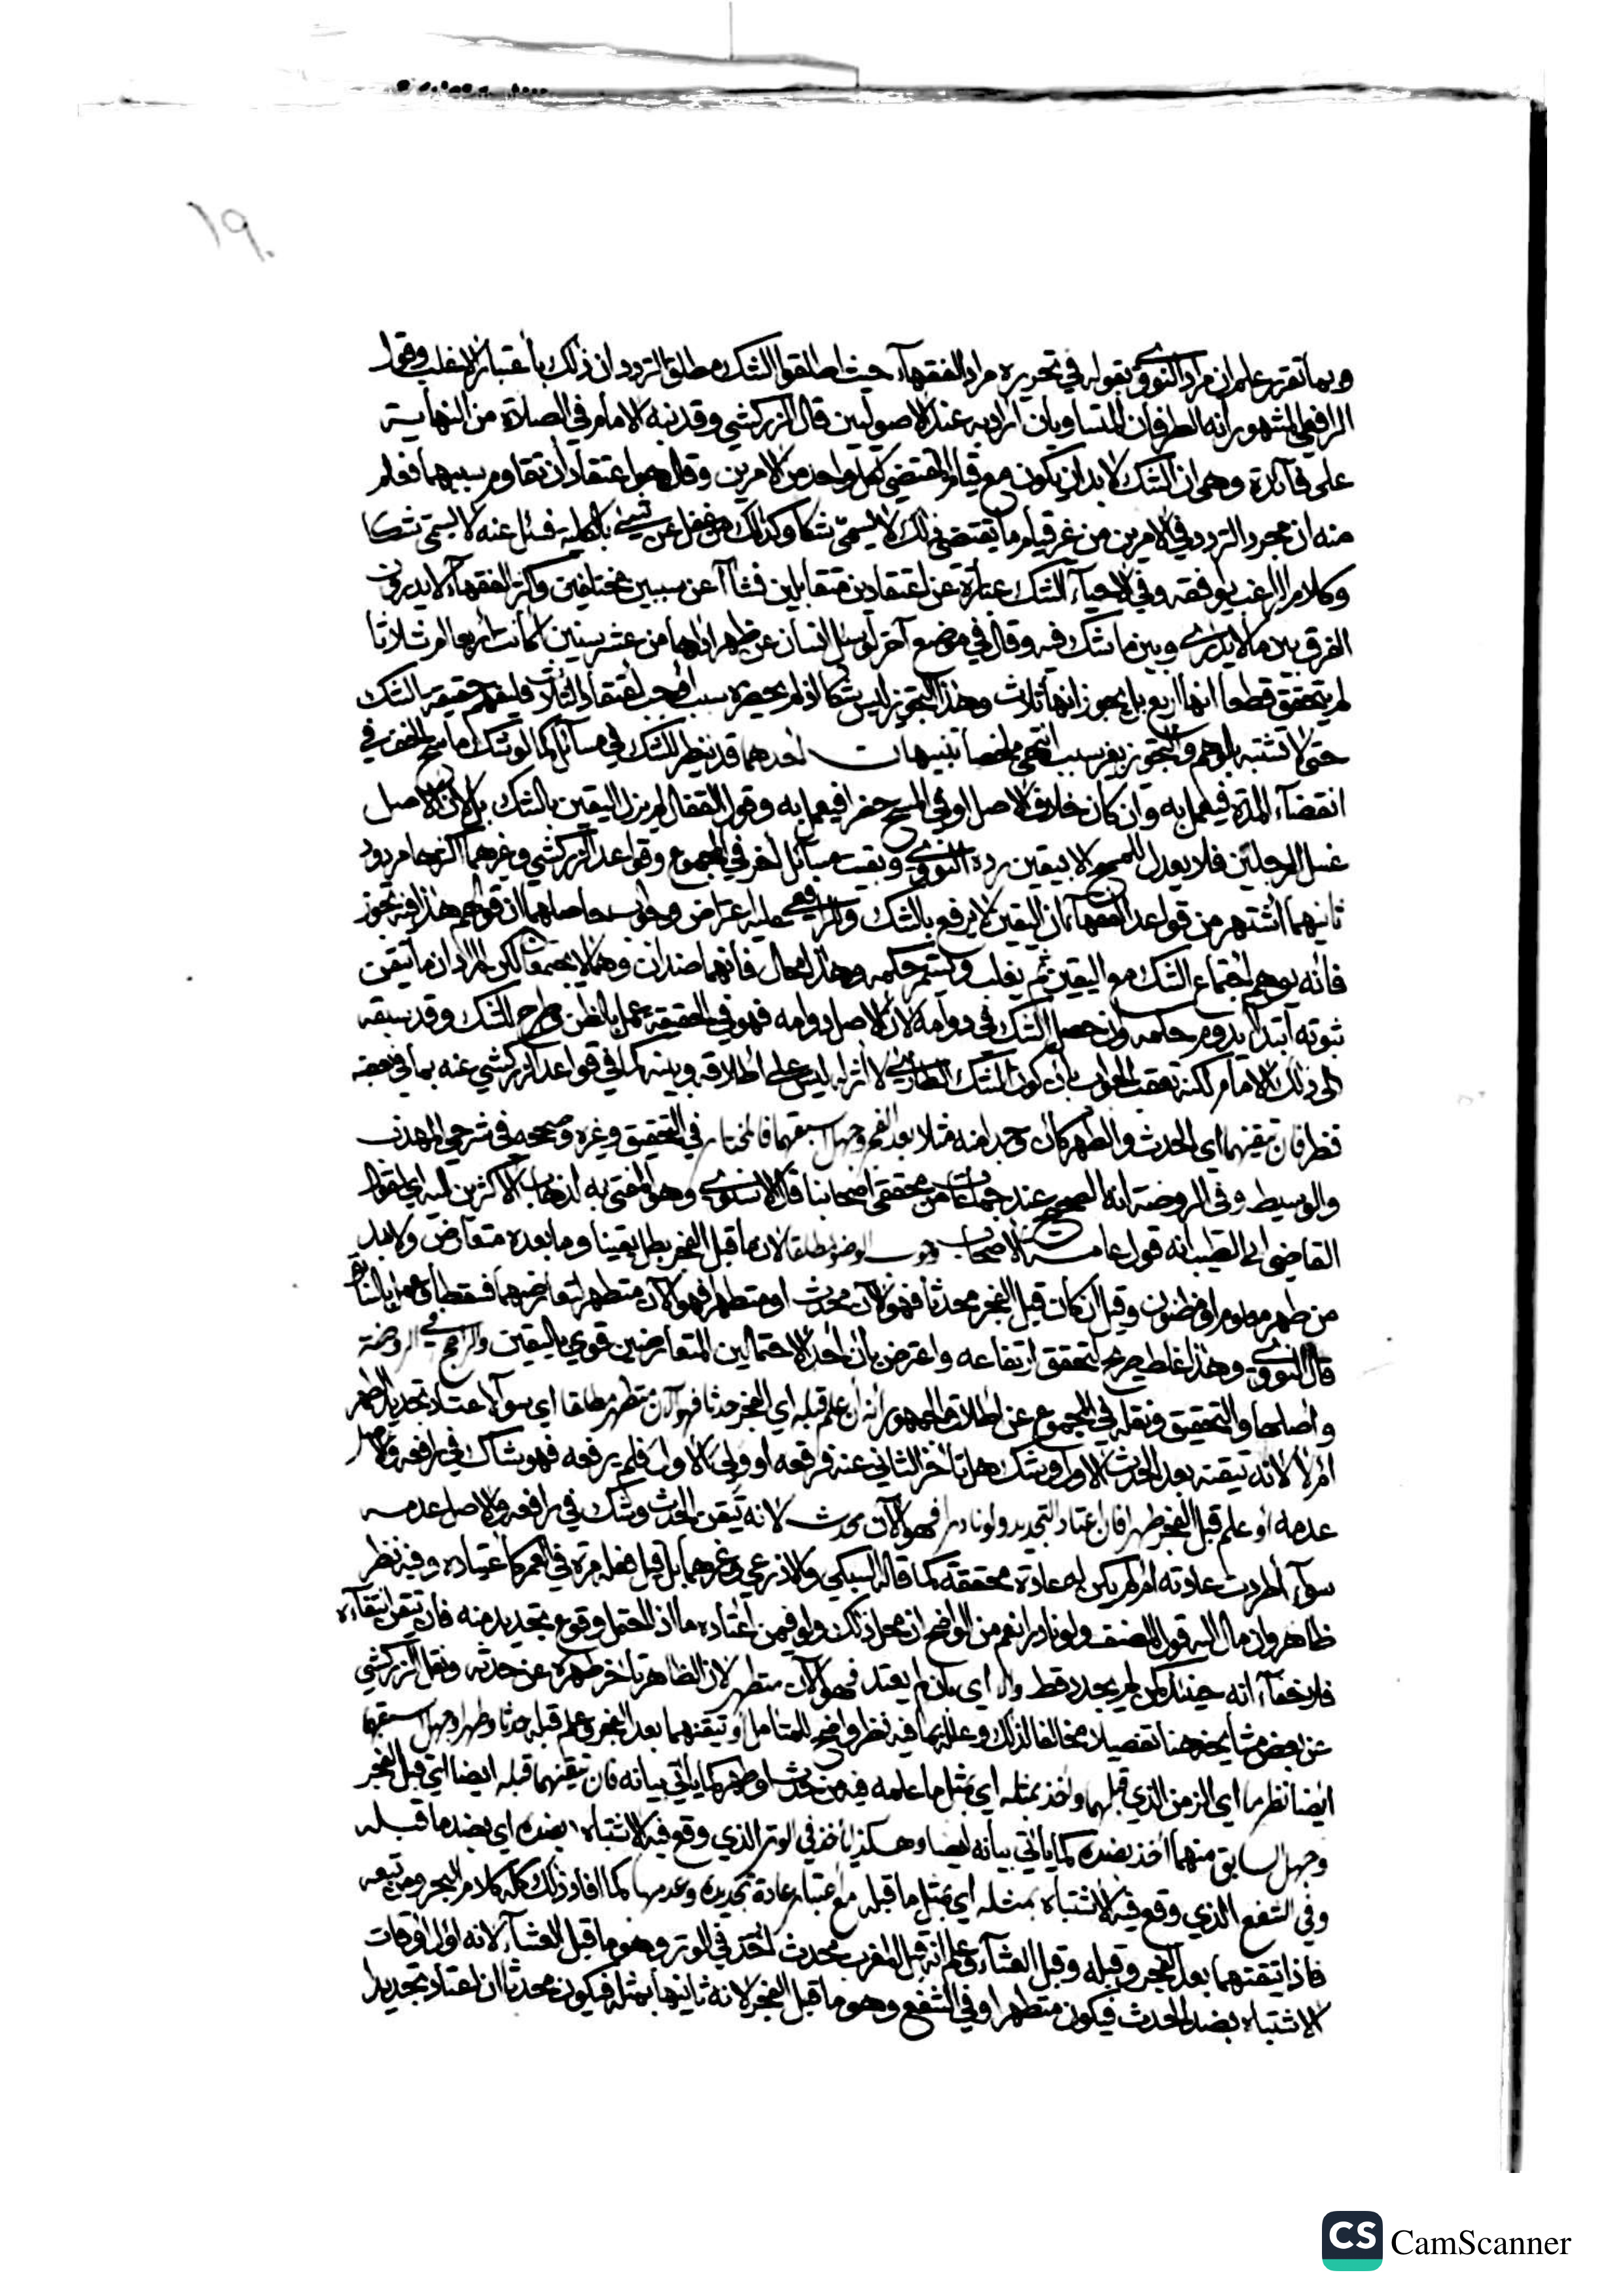 ١٩٠
وبما تقرر علم ان مراد النووي بقوله في تحريره مراد الفقهاء حيث اطلقوا الشك مطلق التردد ان ذلك باعتبار الاغلب وقول
الرافعي المشهور انه الطرفان المتساويان اراد به عند الاصوليين قال الزركشي وقد نبه الامام في الصلاة من النهاية
على فائدة وهي ان الشك لا بد ان يكون مع قيام المقتضي لكل واحد من الامرين وقال هو اعتقادان تقاوم سببهما فعلم
منه ان مجرد التردد في الامرين من غير قيام ما يقتضي ذلك لا يسمى شكا وكذلك من غفل عن شيء بالكلية فسئل عنه لا يسمى شكا
وكلام الراغب يوافقه وفي الاحياء الشك عبارة عن اعتقادين متقابلين نشاآ عن سببين مختلفين واكثر الفقهاء لا يدرون
الفرق بين ما لا يدرى وبين ما شك فيه وقال في موضع آخر لو سئل انسان عن ظهر اداها من عشر سنين اكانت اربعا ام ثلاثا
لم يتحقق قطعا انها اربع بل يجوز انها ثلاث وهذا التجويز ليس شكا اذ لم يحضره سبب اوجب اعتقاد الثلاث فليفهم حقيقة الشك
حتى لا تشتبه بالوهم والتجويز بغير سبب انتهى ملخصا تنبيهات احدهما قد ينظر للشك في مسائل كما لو شك ماسح الخف في
انقضاء المدة فيعمل به وان كان خلاف الاصل او في المسح حضرا فيعمل به وقول القفال لم يزل اليقين بالشك بل لان الاصل
غسل الرجلين فلا يعدل للمسح الا بيقين رده النووي وبقيت مسائل اخر في المجموع وقواعد الزركشي وغيرهما اكثرها مردود
ثانيهما اشتهر من قواعد الفقهاء ان اليقين لا يرفع بالشك وللرافعي عليه اعتراض وجواب حاصلهما ان قولهم هذا فيه تجوز
فانه يوهم اجتماع الشك مع اليقين ثم يغلب ويستمر حكمه وهذا محال فانهما ضدان وهما لا يجتمعان لكن المراد ان ما تيقن
ثبوته ابتداء يدوم حكمه وان حصل الشك في دوامه لان الاصل دوامه فهو في الحقيقة عمل بالظن وطرح للشك وقد سبقه
الى ذلك الامام لكنه تعقب الجواب بان كون الشك الطارئ لا اثر له ليس على اطلاقه وبينه كما في قواعد الزركشي عنه بما في بعضه
نظر فان تيقنهما اي الحدث والطهر كان وجدا منه مثلا بعد الفجر وجهل اسبقهما فالمختار في التحقيق وغيره وصححه في شرحي المهذب
والوسيط وفي الروضة انه الصحيح عند جماعات من محققي اصحابنا قال الاسنوي وهو المفتى به لذهاب الاكثرين اليه اي لقول
القاضي ابي الطيب انه قول عامة الاصحاب وجوب الوضوء مطلقا لان ما قبل الفجر بطل يقينا وما بعده متعارض ولا بد
من طهر معلوم او مظنون وقيل ان كان قبل الفجر محدثا فهو الآن محدث او متطهرا فهو الآن متطهر لتعارضهما فسقطا
قال النووي وهذا غلط صريح لتحقق ارتفاعه واعترض بان احد الاحتمالين المتعارضين قوي باليقين والراجح في الروضة
واصلها والتحقيق ونقله في المجموع عن اطلاق الجمهور انه ان علم قبله اي الفجر حدثا فهو الآن متطهر مطلقا اي سواء اعتاد تجديد الطهر
ام لا لانه تيقنه بعد الحدث الاول وشك هل تاخر الثاني عنه فرفعه او ولي الاول فلم يرفعه فهو شاك في رافعه والاصل
عدمه او علم قبل الفجر طهرا فان اعتاد التجديد ولو نادرا فهو الآن محدث لانه تيقن الحدث وشك في رافعه والاصل عدمه
سواء اطردت عادته ام لم يكن له عادة محققة كما قاله السبكي والاذرعي وغيرهما بل قيل فعله مرة في العمر كاعتياده وفيه نظر
ظاهر وان مال اليه قول المصنف ولو نادرا نعم من الواضح ان محل ذلك ولو فيمن اعتاده ما اذا احتمل وقوع تجديد منه فان تيقن انتفاءه
فلا خفاء انه حينئذ كمن لم يجدد قط والا اي بان لم يعتد فهو الآن متطهر لان الظاهر تاخر طهره عن حدثه ونقل الزركشي
عن بعض مشايخه هنا تفصيلا مخالفا لذلك وعلله بما فيه نظر واضح للمتامل او تيقنهما بعد الفجر وعلم قبله حدثا وطهرا وجهل اسبقهما
ايضا نظر ما اي الزمن الذي قبلهما واخذ بمثله اي بمثل ما علمه فيه من حدث او طهر كما ياتي بيانه فان تيقنهما قبله ايضا اي قبل الفجر
وجهل السابق منهما اخذ بضده كما ياتي بيانه ايضا وهكذا ياخذ في الوتر الذي وقع فيه الاشتباه بضده اي بضد ما قبله
وفي الشفع الذي وقع فيه الاشتباه بمثله اي بمثل ما قبله مع اعتبار عادة تجديده وعدمها كما افاد ذلك كله كلام البحر ومن تبعه
فاذا تيقنهما بعد الفجر وقبله وقبل العشاء وعلم انه قبل المغرب محدث اخذ في الوتر وهو ما قبل العشاء لانه اول اوقات
الاشتباه بضد الحدث فيكون متطهرا وفي الشفع وهو ما قبل الفجر لانه ثانيها بمثله فيكون محدثا ان اعتاد تجديدا
CS CamScanner